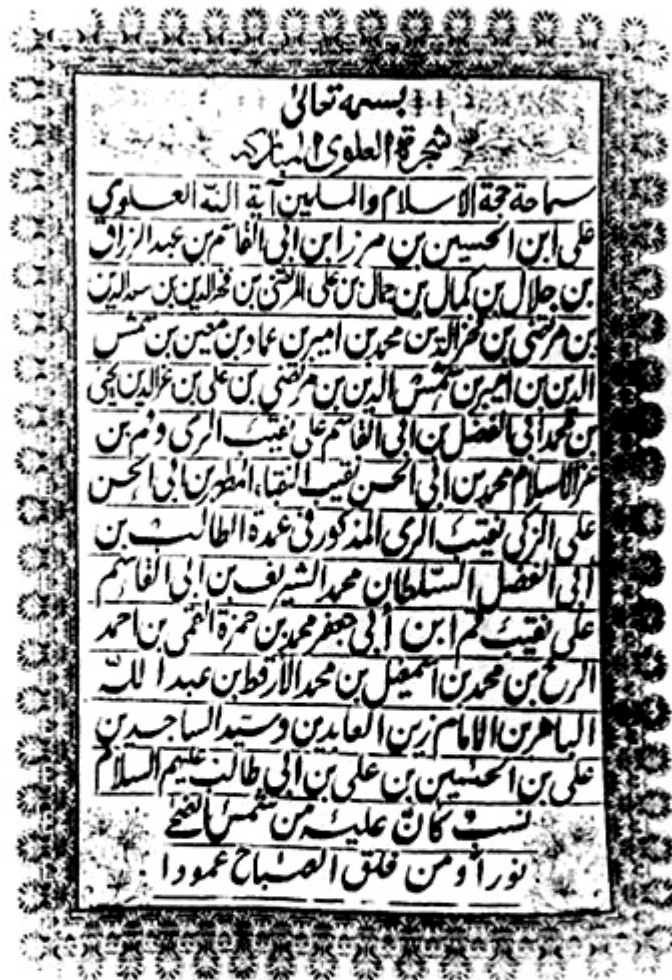 بسمه تعالى
شجرة العلوى المباركه
سماحة حجة الاسلام والمسلمين آية الله العلوي
على ابن الحسين بن مرزا بن ابى القاسم بن عبد الزراق
بن جلال بن كمال بن جمال بن على المرتضى بن فخر الدين بن سعد الدين
بن مرتضى بن فخر الدين بن محمد بن امير بن عماد بن معين بن شمس
الدين بن امير بن شمس الدين بن مرتضى بن على بن عز الدين يحيى
بن محمد ابى الفضل بن ابى القاسم على نقيب الرى وقم بن
عز الاسلام محمد بن ابى الحسن نقيب النقباء المطهر بن ابى الحسن
على الزكى نقيب الرى المذكور فى عمدة الطالب بن
أبى الفضل السلطان محمد الشريف بن ابى القاسم
على نقيب قم ابن أبى جعفر محمد بن حمزة القمى بن احمد
الرخ بن محمد بن اسمعيل بن محمد الأرقط بن عبد الله
الباهر بن الامام زين العابدين وسيد الساجدين
على بن الحسين بن على بن ابى طالب عليهم السلام
نسب كان عليه من شمس الضحى
نوراً ومن فلق الصباح عمودا